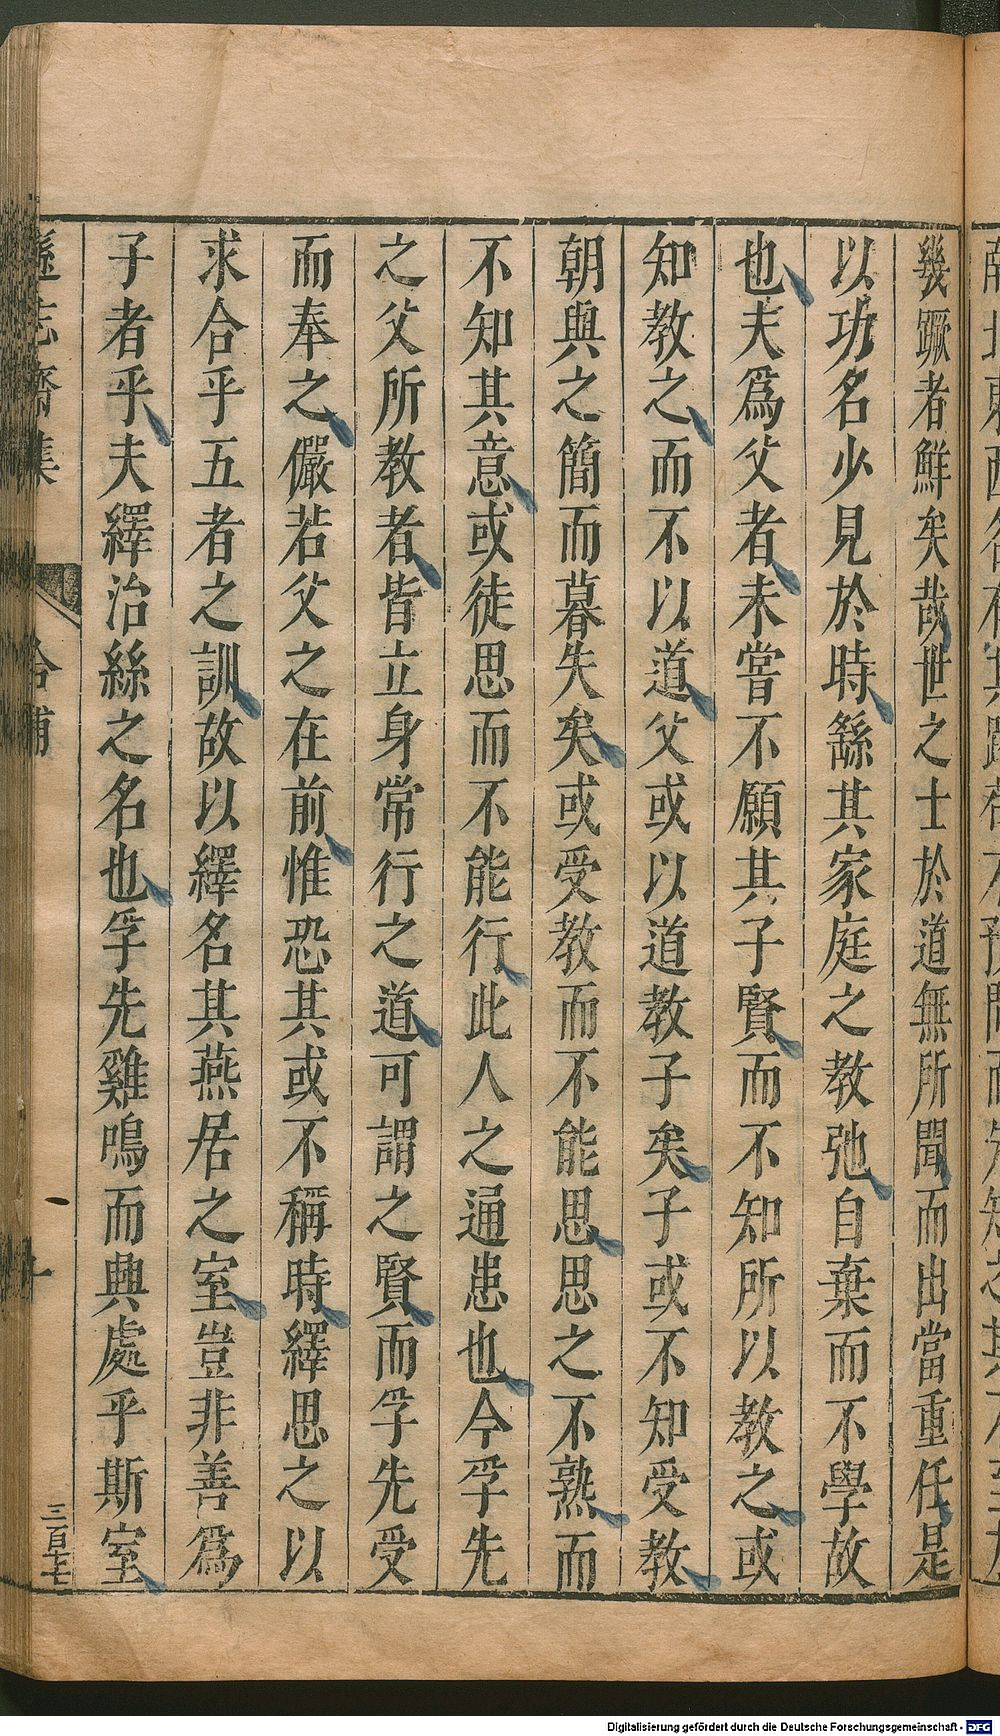 幾蹶者鮮矣哉世之士於道無所聞而出當重任是
以功名少見於時繇其家庭之教弛自棄而不學故
也夫爲父者未嘗不願其子賢而不知所以教之或
知教之而不以道父或以道教子矣子或不知受教
朝與之簡而暮失矣或受教而不能思思之不熟而
不知其意或徒思而不能行此人之通患也今孚先
之父所教者皆立身常行之道可謂之賢而孚先受
而奉之儼若父之在前惟恐其或不稱時繹思之以
求合乎五者之訓故以繹名其燕居之室豈非善爲
子者乎夫繹治絲之名也孚先雞鳴而興處乎斯室
遜志齋集
拾補
三百七七
Digitalisierung gefördert durch die Deutsche Forschungsgemeinschaft - DFG